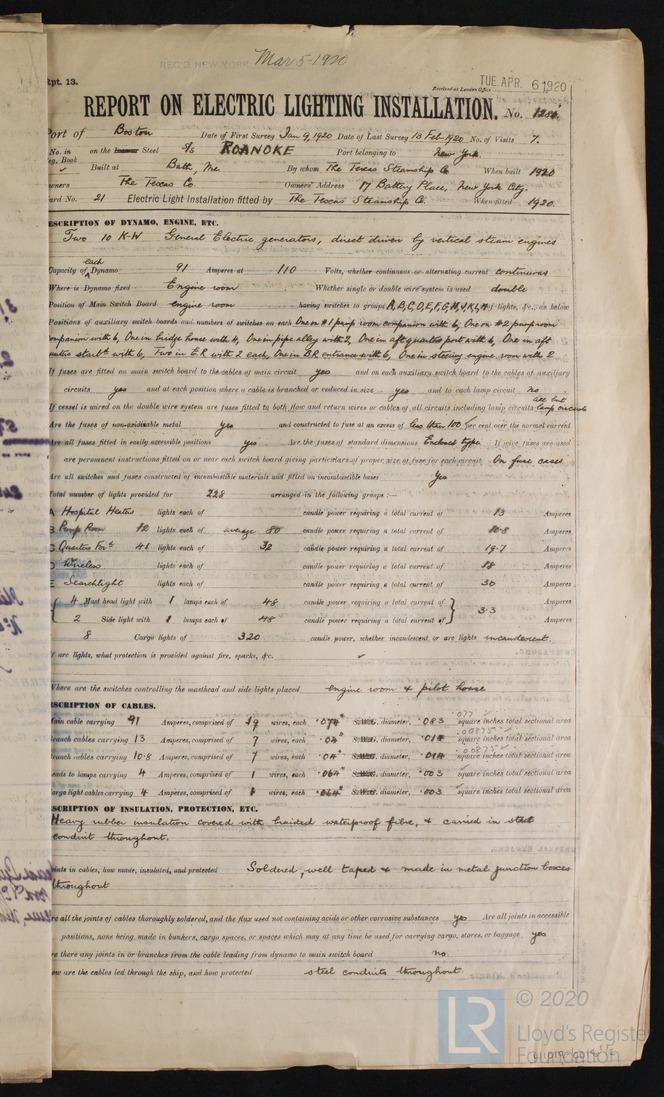 REC'D NEW YORK Mar 5-1920
Rpt. 13.
Received at London Office TUE. APR. 6 1920
REPORT ON ELECTRIC LIGHTING INSTALLATION. No.
Port of Boston Date of First Survey Jan 9, 1920 Date of Last Survey 13 Feb 1920 No. of Visits 7.
No. in on the Steel S/s ROANOKE Port belonging to New York
Reg. Book Built at Bath, Me. By whom The Texas Steamship Co When built 1920
Owners The Texas Co. Owners' Address 17 Battery Place, New York City.
Card No. 21 Electric Light Installation fitted by The Texas Steamship Co. When fitted 1920.
DESCRIPTION OF DYNAMO, ENGINE, ETC.
Two 10 K-W General Electric generators, direct driven by vertical steam engines
Capacity of each Dynamo 91 Amperes at 110 Volts, whether continuous or alternating current continuous
Where is Dynamo fixed Engine room Whether single or double wire system is used double
Position of Main Switch Board engine room having switches to groups A, B, C, D, E, F, G, H, J, K, L, M of lights, &c., as below
Positions of auxiliary switch boards and numbers of switches on each One in #1 pump room companion with 6, One in #2 pump room
companion with 6, One in bridge house with 4, One in pipe alley with 2, One in aft quarters port with 6, One in aft
quarters starbd with 6, Two in E.R with 2 each, One in B.R entrance with 6, One in steering engine room with 2
If fuses are fitted on main switch board to the cables of main circuit yes and on each auxiliary switch board to the cables of auxiliary
circuits yes and at each position where a cable is branched or reduced in size yes and to each lamp circuit no
If vessel is wired on the double wire system are fuses fitted to both flow and return wires or cables of all circuits including lamp circuits all but lamp circuits
Are the fuses of non-oxidizable metal yes and constructed to fuse at an excess of less than 100 per cent over the normal current
Are all fuses fitted in easily accessible positions yes Are the fuses of standard dimensions Enclosed type If wire fuses are used
are permanent instructions fitted on or near each switch board giving particulars of proper size of fuse for each circuit On fuse cases
Are all switches and fuses constructed of incombustible materials and fitted on incombustible bases Yes
Total number of lights provided for 228 arranged in the following groups :—
A Hospital Heaters lights each of candle power requiring a total current of 13 Amperes
B Pump Room 12 lights each of average 80 candle power requiring a total current of 10.8 Amperes
C Quarters Ford 46 lights each of 32 candle power requiring a total current of 19.7 Amperes
D Wireless lights each of candle power requiring a total current of 18 Amperes
E Searchlight lights each of candle power requiring a total current of 30 Amperes
4 Mast head light with 1 lamps each of 48 candle power requiring a total current of 3.3 Amperes
2 Side light with 1 lamps each of 48 candle power requiring a total current of Amperes
8 Cargo lights of 320 candle power, whether incandescent or arc lights incandescent.
If arc lights, what protection is provided against fire, sparks, &c. ✓
Where are the switches controlling the masthead and side lights placed engine room & pilot house
DESCRIPTION OF CABLES.
Main cable carrying 91 Amperes, comprised of 19 wires, each .074" S.W.G. diameter, .083 square inches total sectional area
Branch cables carrying 13 Amperes, comprised of 7 wires, each S.W.G. diameter, square inches total sectional area
Branch cables carrying 10.8 Amperes, comprised of 7 wires, each S.W.G. diameter, square inches total sectional area
Leads to lamps carrying 4 Amperes, comprised of 1 wires, each .064" S.W.G. diameter, .003 square inches total sectional area
Cargo light cables carrying 4 Amperes, comprised of 1 wires, each .064" S.W.G. diameter, .003 square inches total sectional area
DESCRIPTION OF INSULATION, PROTECTION, ETC.
Heavy rubber insulation covered with braided waterproof fibre, & carried in steel
conduit throughout.
Joints in cables, how made, insulated, and protected Soldered, well taped & made in metal junction boxes
throughout
Are all the joints of cables thoroughly soldered, and the flux used not containing acids or other corrosive substances yes Are all joints in accessible
positions, none being made in bunkers, cargo spaces, or spaces which may at any time be used for carrying cargo, stores, or baggage yes
Are there any joints in or branches from the cable leading from dynamo to main switch board no.
How are the cables led through the ship, and how protected steel conduits throughout
LR © 2020
Lloyd's Register
Foundation